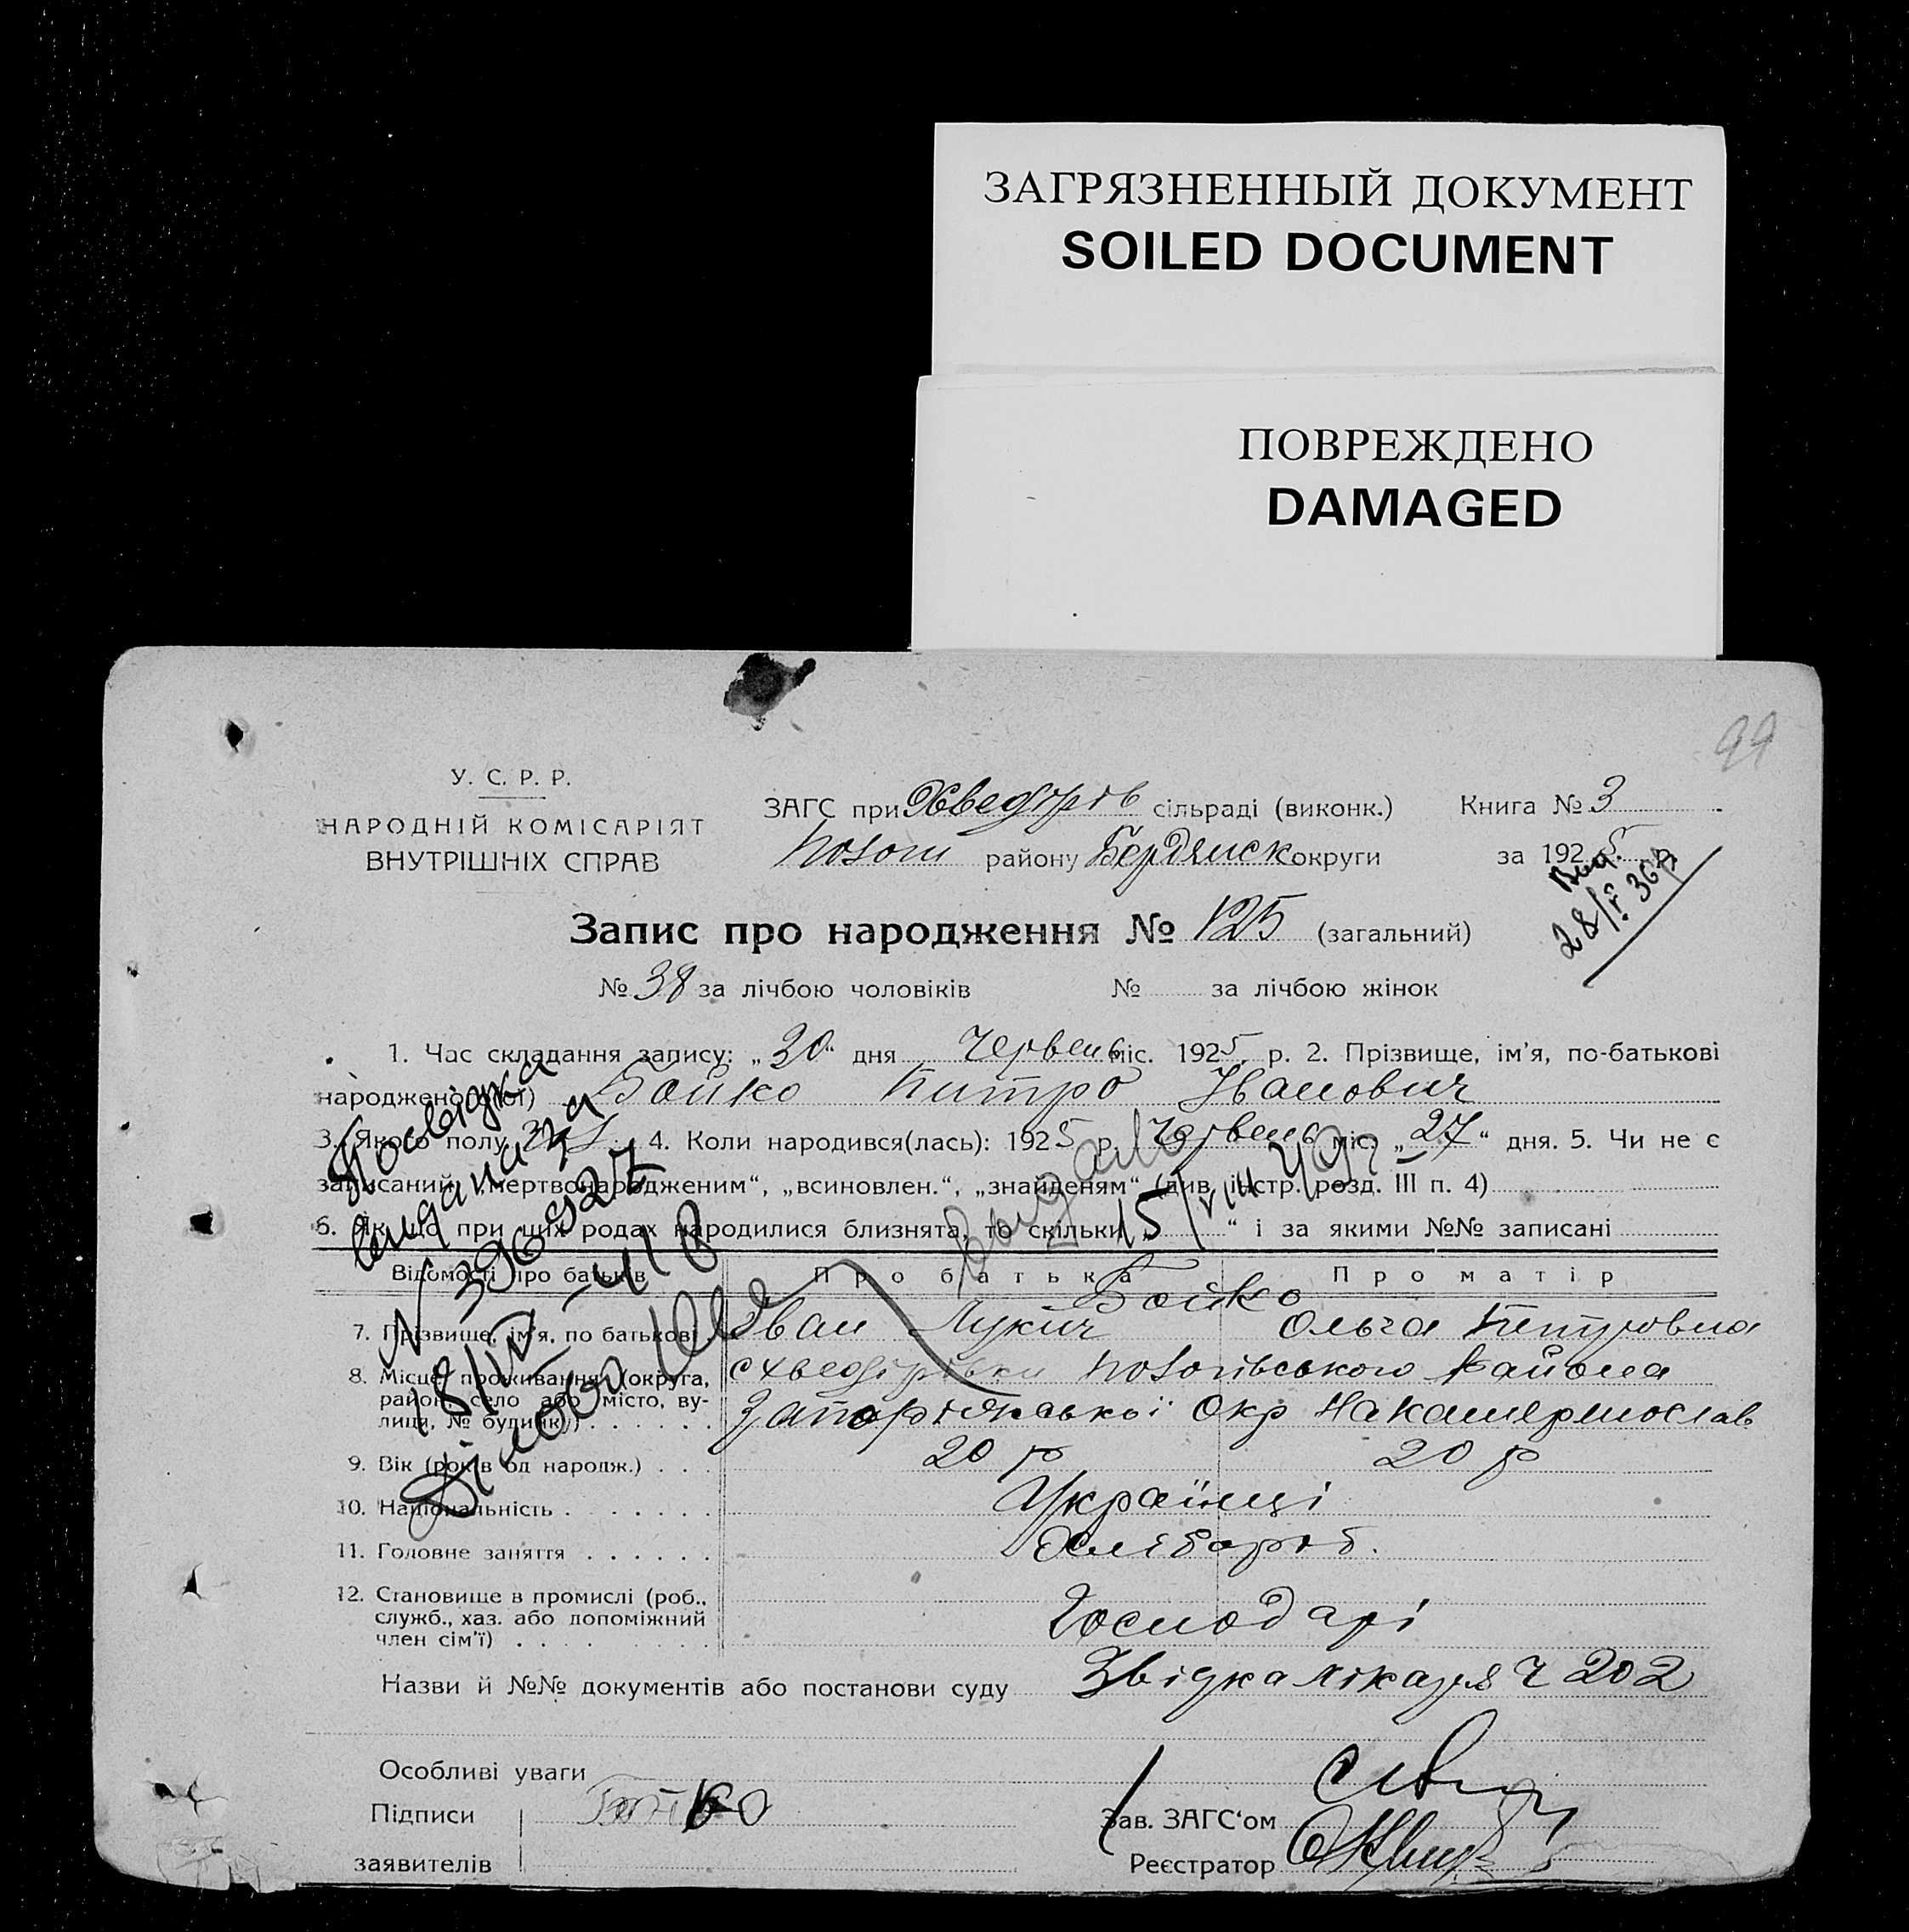 ЗАГРЯЗНЕННЫЙ ДОКУМЕНТ
SOILED DOCUMENT
ПОВРЕЖДЕНО
DAMAGED
99
У. С. Р. Р.
НАРОДНІЙ КОМІСАРІЯТ
ВНУТРІШНІХ СПРАВ
ЗАГС при Хведорів сільраді (виконк.) Книга № 3
району Бердянск округи за 1925
28/ 36р
Запис про народження № 125 (загальний)
№ 38 за лічбою чоловіків № за лічбою жінок
1. Час складання запису: „30“ дня Червень міс. 1925 р. 2. Прізвище, ім’я, по-батькові
народженого(ої) Бойко Питро Іванович
3. Якого полу 4. Коли народився(лась): 1925 р. Червень міс. „27“ дня. 5. Чи не є
записаний „мертвонародженим“, „всиновлен.“, „знайденям“ (див. інстр. розд. III п. 4)
6. Як що при цих родах народилися близнята, то скільки „ “ і за якими №№ записані
Відомості про батьків Про батька Про матір
Бойко
7. Прізвище, ім’я, по батькові Іван Лукич Ольга Петровна
8. Місце проживання (округа,
район, село або місто, вулиця, № будинк.)
Запоріжської Окр
9. Вік (років од народж.) 20 р 20 р
10. Національність Українці
11. Головне заняття Хлібороб.
12. Становище в промислі (роб.,
служб., хаз. або допоміжний
член сім’ї) Господарі
Назви й №№ документів або постанови суду Звідка лікаря Ч 202
Особливі уваги
Підписи Бойко
заявителів
Зав. ЗАГС‘ом
Реєстратор
Посвідка
видана за